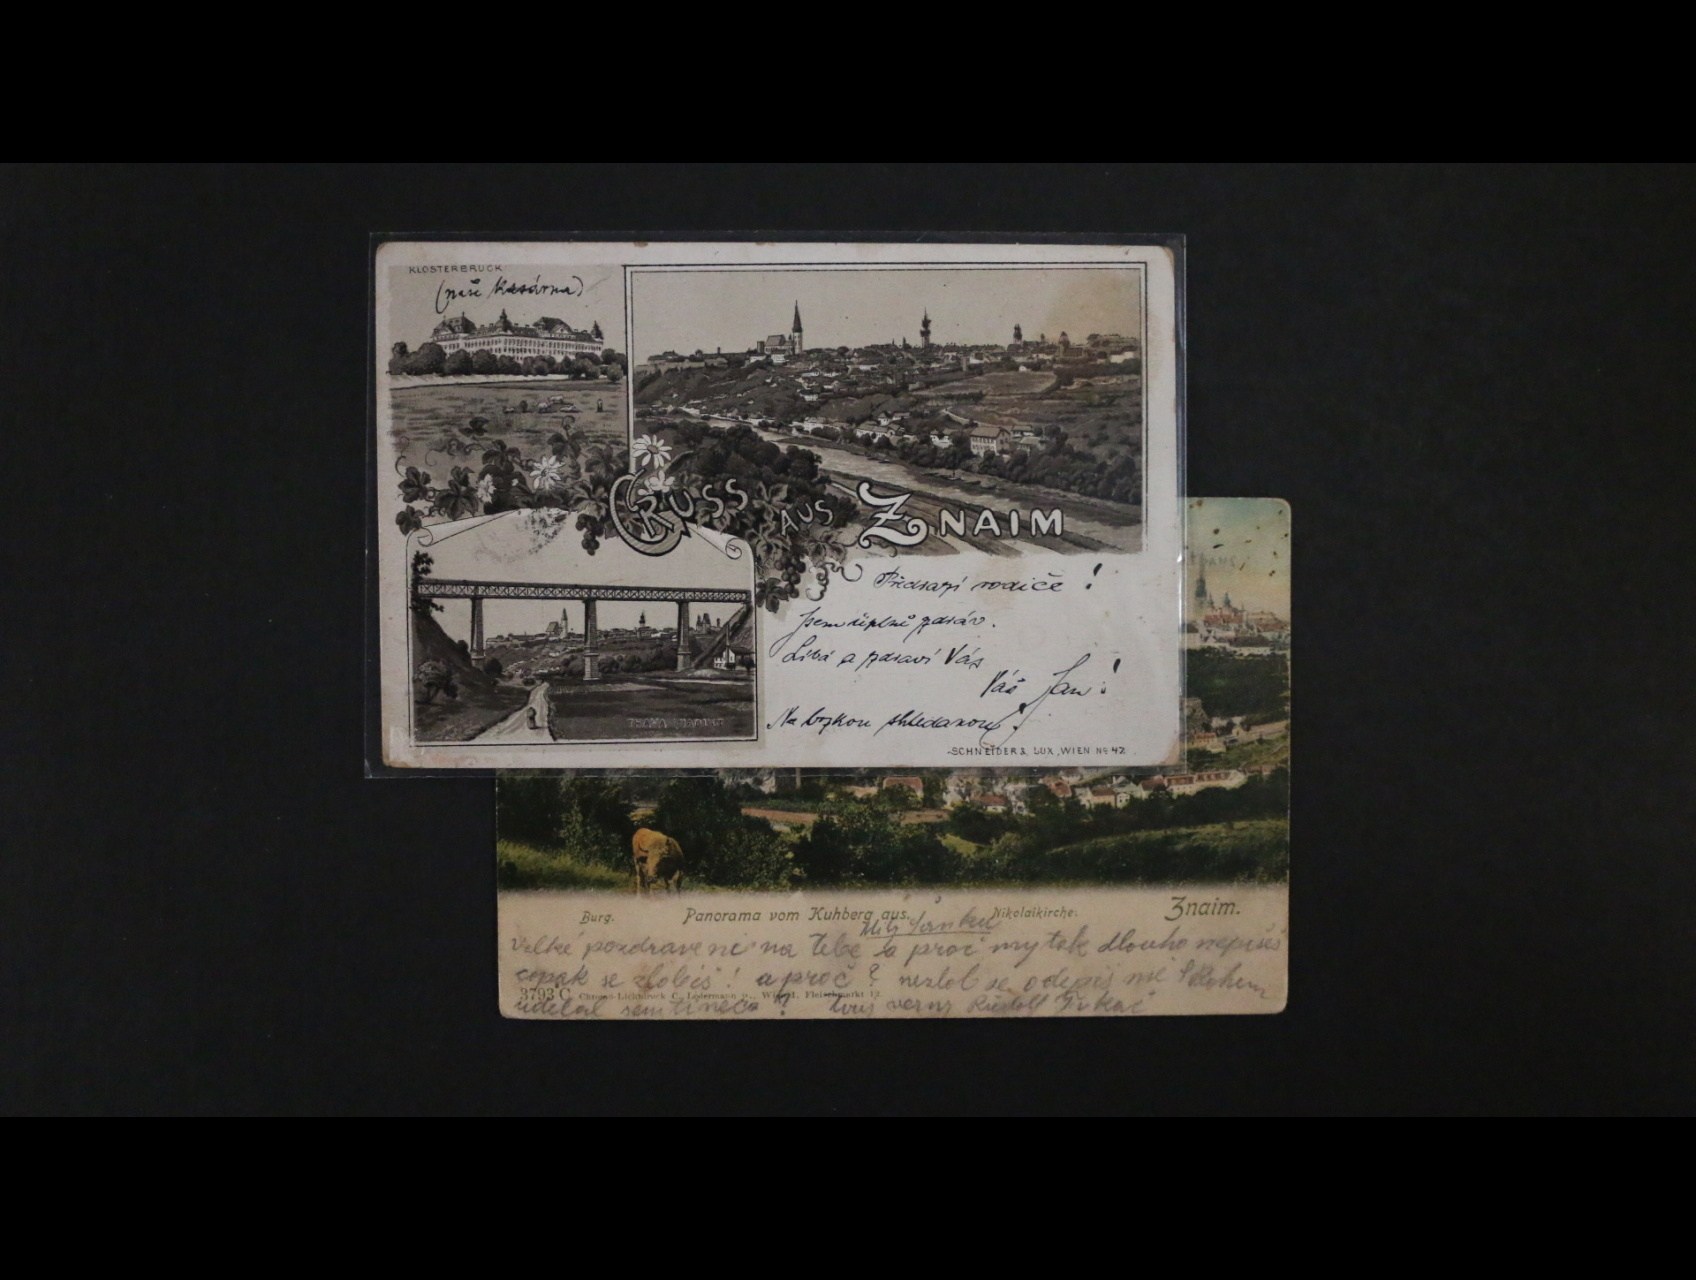 KLOSTERBRUCK
(naše kasárna)
GRUSS AUS ZNAIM
Předrazí rodiče!
Jsem úplně zdráv.
Líbá a zdraví Vás
Váš Jan!
Na brzkou shledanou!
SCHNEIDER & LUX, WIEN No 42
Burg. Panorama vom Kuhberg aus. Nikolaikirche. Znaim.
Milý
Velké pozdravení na Tebe a proč my tak dlouho nepíšeš
copak se zlobíš! a proč? nezlob se odepiš mě
3793 C
udělal sem ti něco? tvůj verný Rudolf